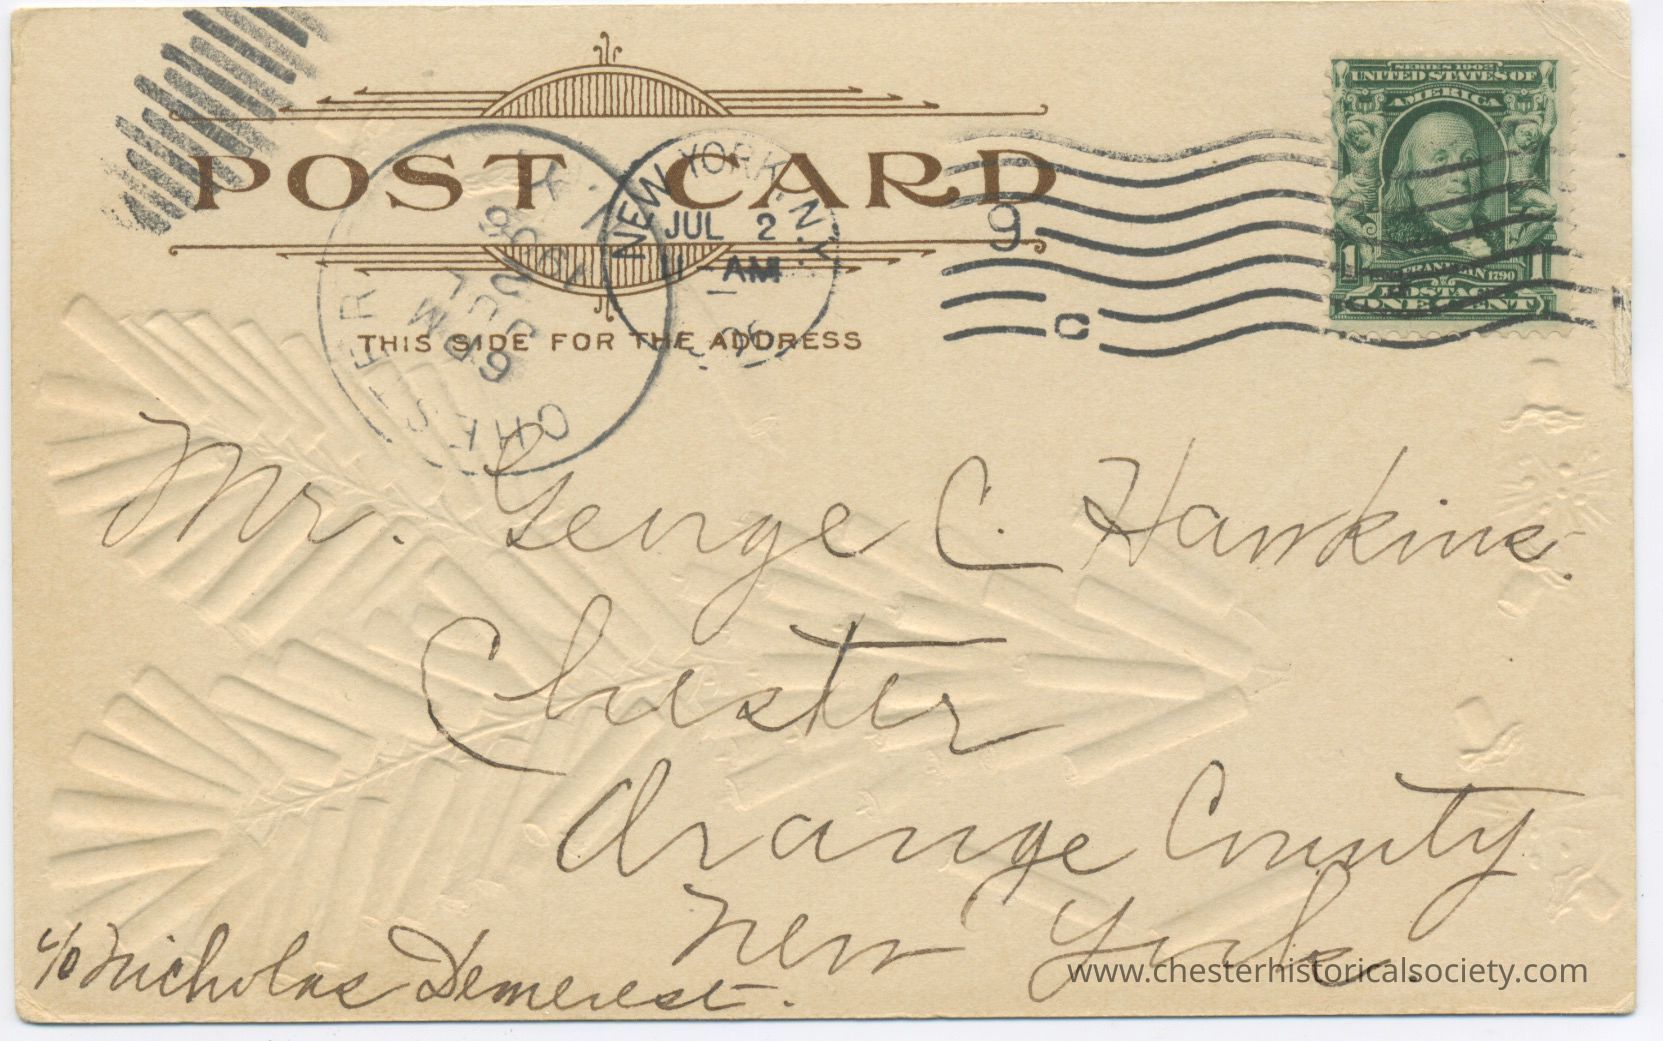 POST CARD
THIS SIDE FOR THE ADDRESS
NEW YORK, N.Y.
JUL 2
AM
06
9
C
CHESTER
N.Y.
JUL
2
1906
6 PM
SERIES 1902
UNITED STATES OF
AMERICA
1 FRANKLIN 1790 1
POSTAGE
ONE CENT
Mr. George C. Hawkins.
Chester
Orange County
New York.
c/o Nicholas Demerest.
www.chesterhistoricalsociety.com